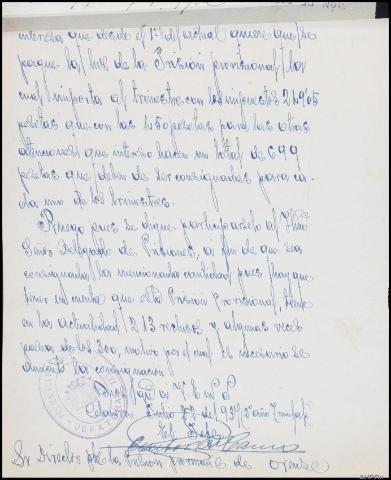 interesa que desde el 1º del actual quiere que se
pague la luz de la Prisión provisional, la
cual importa al trimestre con los impuestos 249'05
pesetas que con las 450 pesetas para las otras
atenciones que intereso hacen un total de 699
pesetas que deben de ser consignadas para ca-
da uno de los trimestres.
Ruego pues se digne participarselo al Ilmo
Señor Delegado de Prisiones, a fin de que sea
consignada la mencionada cantidad pues hay que
tener en cuenta que esta Prisión Provisional, tiene
en la actualidad 213 reclusos y algunas veces
pasa de los 300, motivo por el cual es necesario se
aumente la consignación
Dios
Celanova Enero de 1937
El Jefe
JEFATURA
Sr Director de la Prisión provincial de Orense